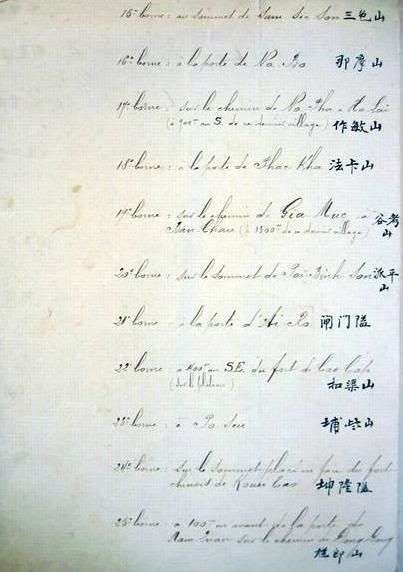 15e borne : au sommet de Sam Sic Son 三色山
16e borne : à la porte de Na Mo 那摩山
17e borne : sur le chemin de Na Pha à Ma Lai
(à 900m au S. de ce dernier village) 作敏山
18e borne : à la porte de Phac Kha 法卡山
19e borne : sur le chemin de Gia Muc à 谷考
Ban Chau (à 1300m de ce dernier village) 山
20e borne : sur le sommet de Païbinh Son 派平
山
21e borne : à la porte d'Ai Ro 闸门隘
22e borne : à 400m au S.E. du fort de Cao Cap
(sur le plateau) 扣渠山
23e borne : à Po Seu 埔山
24e borne : sur le sommet placé en face du fort
chinois de Kouei Cao 坤隆隘
25e borne : à 100m en avant de la porte de
Nam Quan sur le chemin de Dong Dang
山